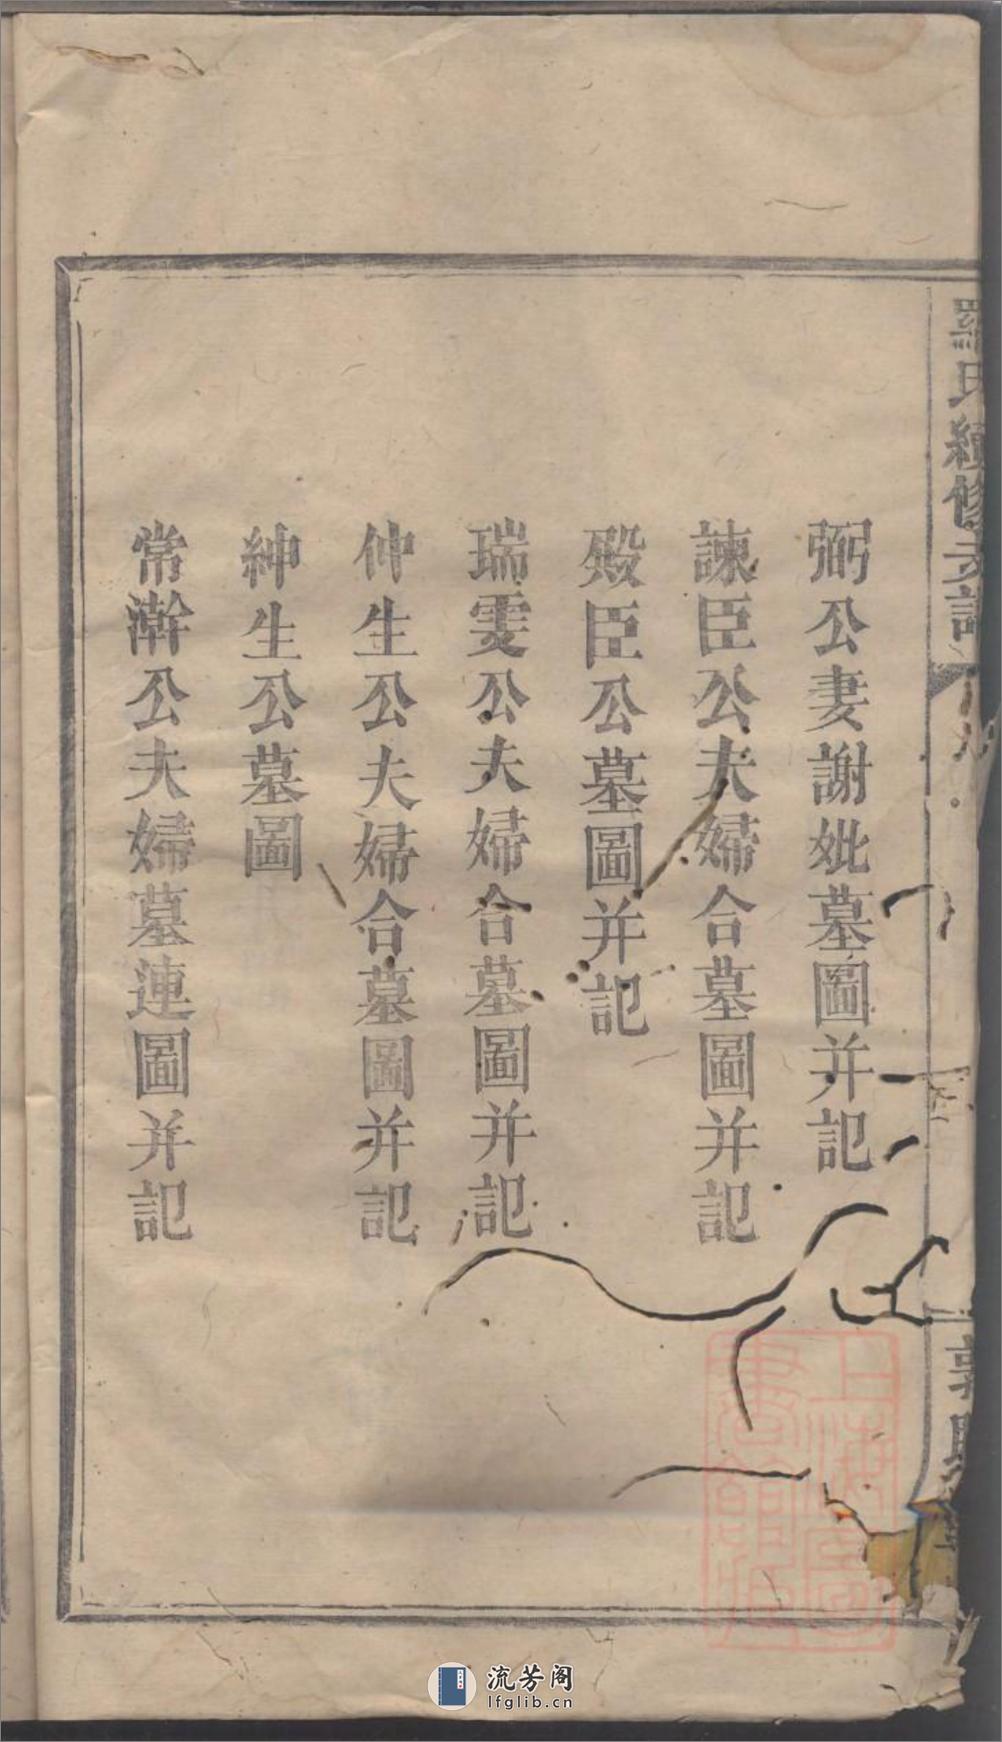 羅氏續修支譜
弼公妻謝妣墓圖并記
諫臣公夫婦合墓圖并記
殿臣公墓圖并記
瑞雯公夫婦合墓圖并記
仲生公夫婦合墓圖并記
紳生公墓圖
常澣公夫婦墓連圖并記
流芳阁
lfglib.cn